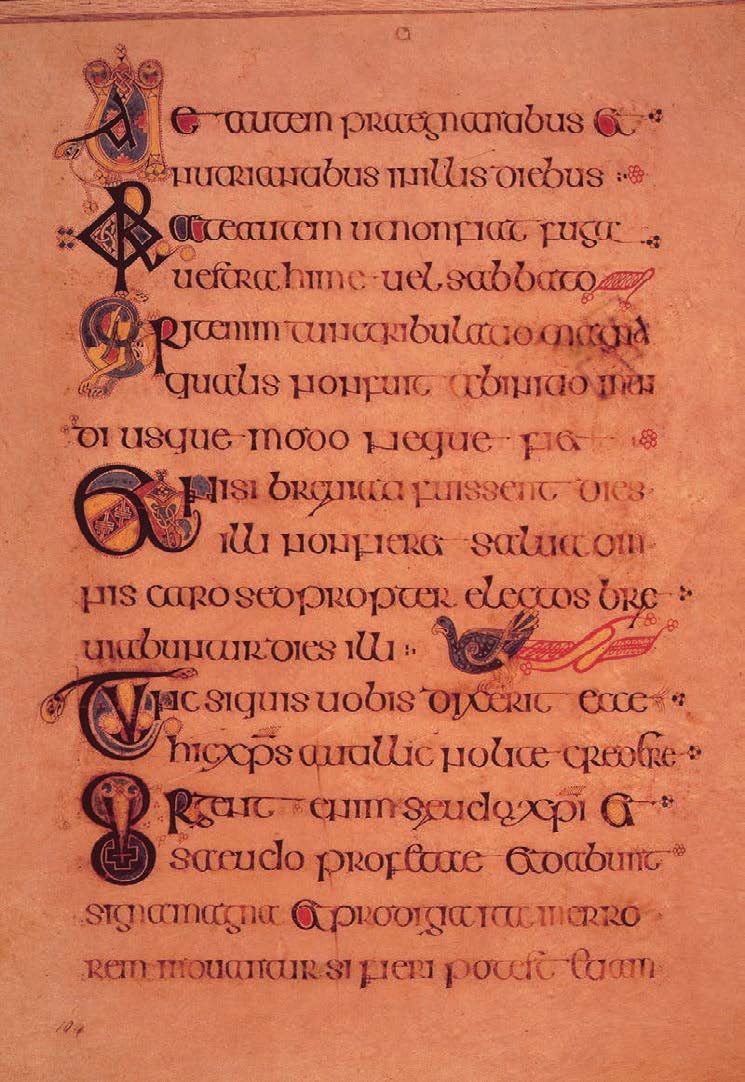 Uae autem praegnantibus et
nutrientibus in illis diebus
Orate autem ut non fiat fuga
uestra hime uel sabbato
Erit enim tunc tribulatio magna
qualis non fuit ab initio mun
di usque modo neque fiet
Et nisi breuiati fuissent dies
illi non fieret salua om
nis caro sed propter electos bre
uiabuntur dies illi
Tunc siquis uobis dixerit ecce
hic xps aut illic nolite credere
Surgent enim seudo xpi et
seudo profetae et dabunt
signa magna et prodigia ita ut in erro
rem moueantur si fieri potest etiam
104